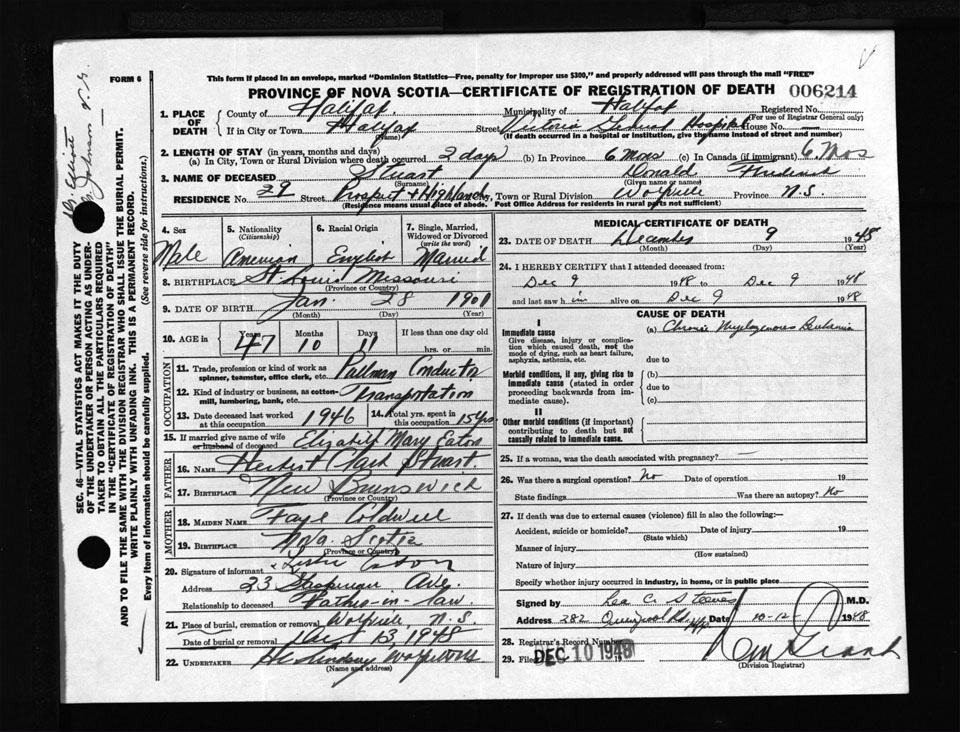 This form if placed in an envelope, marked "Dominion Statistics—Free, penalty for improper use $300," and properly addressed will pass through the mail "FREE"
FORM 6
PROVINCE OF NOVA SCOTIA—CERTIFICATE OF REGISTRATION OF DEATH 006214
1. PLACE OF DEATH
County of Halifax Municipality of Halifax Registered No.
(For use of Registrar General only)
If in City or Town Halifax Street Victoria General Hospital House No. —
(If death occurred in a hospital or institution, give the name instead of street and number)
2. LENGTH OF STAY (in years, months and days)
(a) In City, Town or Rural Division where death occurred 2 days (b) In Province 6 Mos (c) In Canada (if immigrant) 6 Mos
3. NAME OF DECEASED Stuart Donald Frederick
(Surname) (Given name or names)
RESIDENCE No. 29 Street Prospect & Highland City, Town or Rural Division Wolfville Province N.S.
(Residence means usual place of abode. Post Office Address for residents in rural parts not sufficient)
4. Sex
Male
5. Nationality
(Citizenship)
American
6. Racial Origin
English
7. Single, Married, Widowed or Divorced
(write the word)
Married
8. BIRTHPLACE St. Louis Missouri
(Province or Country)
9. DATE OF BIRTH Jan. 28 1901
(Month) (Day) (Year)
10. AGE in
Years Months Days If less than one day old
47 10 11 hrs. or min.
OCCUPATION
11. Trade, profession or kind of work as spinner, teamster, office clerk, etc. Pullman Conductor
12. Kind of industry or business, as cotton-mill, lumbering, bank, etc. Transportation
13. Date deceased last worked at this occupation 1946 14. Total yrs. spent in this occupation 15 yrs
15. If married give name of wife or husband of deceased Elizabeth Mary Eaton
FATHER
16. NAME Herbert Clark Stuart
17. BIRTHPLACE New Brunswick
(Province or Country)
MOTHER
18. MAIDEN NAME Faye Coldwell
19. BIRTHPLACE Nova Scotia
(Province or Country)
20. Signature of informant Leslie Eaton
Address 23 Ave.
Relationship to deceased Father-in-law
21. Place of burial, cremation or removal Wolfville, N.S.
Date of burial or removal Dec 13, 1948
22. UNDERTAKER Lindsay Wolfville
(Name and address)
MEDICAL CERTIFICATE OF DEATH
23. DATE OF DEATH December 9 1948
(Month) (Day) (Year)
24. I HEREBY CERTIFY that I attended deceased from:
Dec 9 1948 to Dec 9 1948
and last saw him alive on Dec 9 1948
CAUSE OF DEATH
I
Immediate cause
Give disease, injury or complication which caused death, not the mode of dying, such as heart failure, asphyxia, asthenia, etc.
(a) Chronic Myelogenous Leukemia
due to
Morbid conditions, if any, giving rise to immediate cause (stated in order proceeding backwards from immediate cause).
(b)
due to
(c)
II
Other morbid conditions (if important) contributing to death but not causally related to immediate cause.
25. If a woman, was the death associated with pregnancy? —
26. Was there a surgical operation? No Date of operation 19
State findings Was there an autopsy? No
27. If death was due to external causes (violence) fill in also the following:—
Accident, suicide or homicide? Date of injury 19
(State which)
Manner of injury
(How sustained)
Nature of injury
Specify whether injury occurred in industry, in home, or in public place
Signed by C. Steeves M.D.
Address 282 Quinpool Rd Date 10-12- 1948
28. Registrar's Record Number
29. Filed DEC 10 1948 Grant
(Division Registrar)
SEC. 46—VITAL STATISTICS ACT MAKES IT THE DUTY OF THE UNDERTAKER OR PERSON ACTING AS UNDERTAKER TO OBTAIN ALL THE PARTICULARS REQUIRED IN THE "CERTIFICATE OF REGISTRATION OF DEATH" AND TO FILE THE SAME WITH THE DIVISION REGISTRAR WHO SHALL ISSUE THE BURIAL PERMIT.
WRITE PLAINLY WITH UNFADING INK. THIS IS A PERMANENT RECORD.
Every item of information should be carefully supplied. (See reverse side for instructions.)